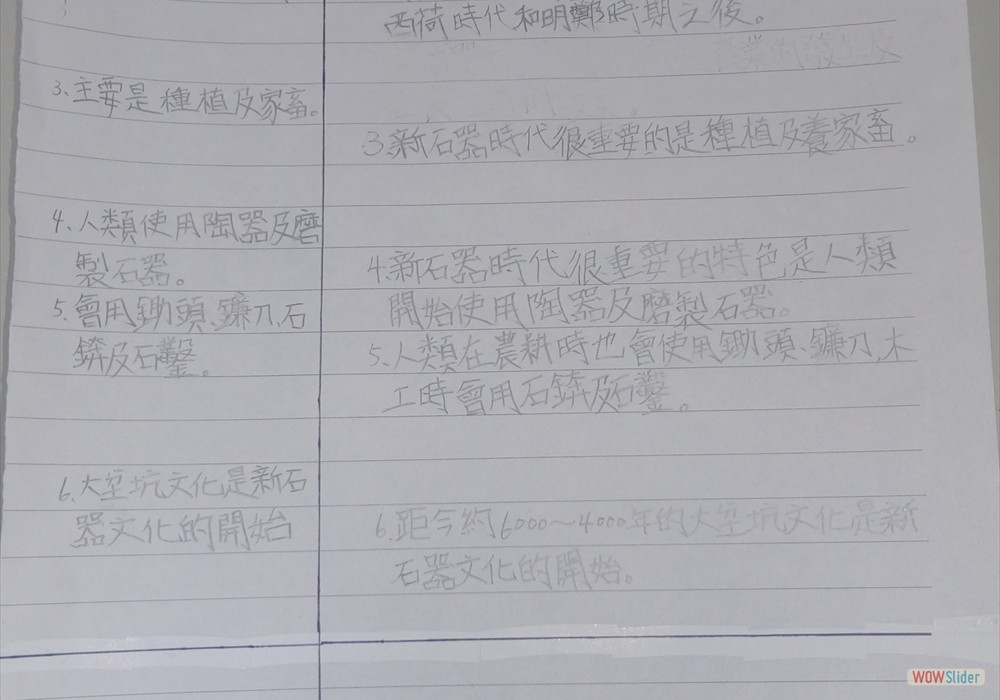 西荷時代和明鄭時期之後。
3、主要是種植及家畜。
3.新石器時代很重要的是種植及養家畜。
4、人類使用陶器及磨
製石器。
4.新石器時代很重要的特色是人類
開始使用陶器及磨製石器。
5、會用鋤頭、鐮刀、石
錛及石鑿。
5、人類在農耕時也會使用鋤頭、鐮刀,木
工時會用石錛及石鑿。
6、大坌坑文化是新石
器文化的開始
6.距今約6000~4000年的大坌坑文化是新
石器文化的開始。
WOWSlider